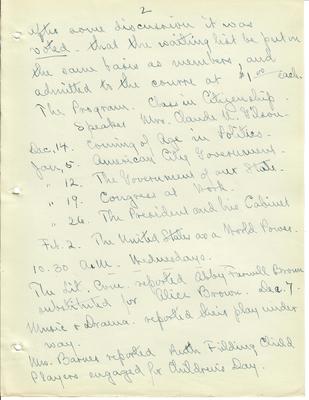 2
After some discussion it was
voted - that the waiting list be put on
the same basis as members, and
admitted to the course at $1.00 each.
The Program. Class in Citizenship.
Speaker Mrs. Claude U. Gilson.
Dec. 14. Coming of Age in Politics.
Jan. 5. American City Government.
" 12. The Government of our State.
" 19. Congress at Work.
" 26. The President and his Cabinet
Feb. 2. The United States as a World Power.
10.30 A.M. Wednesdays.
The Lit. Com. reported Abby Farwell Brown
substituted for Alice Brown. Dec. 7.
Music & Drama. reported their play under
way.
Mrs. Barnes reported Ruth Fielding Child
Players engaged for Children's Day.